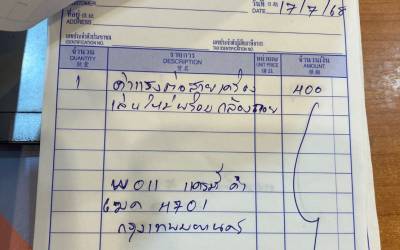 CUSTOMER
วันที่
DATE 17/7/68
ที่อยู่
ADDRESS
เลขประจำตัวประชาชน
IDENTIFICATION NO.
เลขประจำตัวผู้เสียภาษีอากร
TAX IDENTIFICATION NO.
จำนวน รายการ หน่วยละ จำนวนเงิน
QUANTITY DESCRIPTION UNIT PRICE AMOUNT
1 ค่าแรงต่อสายเครื่อง 400
เล่นใหม่พร้อมกล้อง
4701
กรุงเทพมหานคร